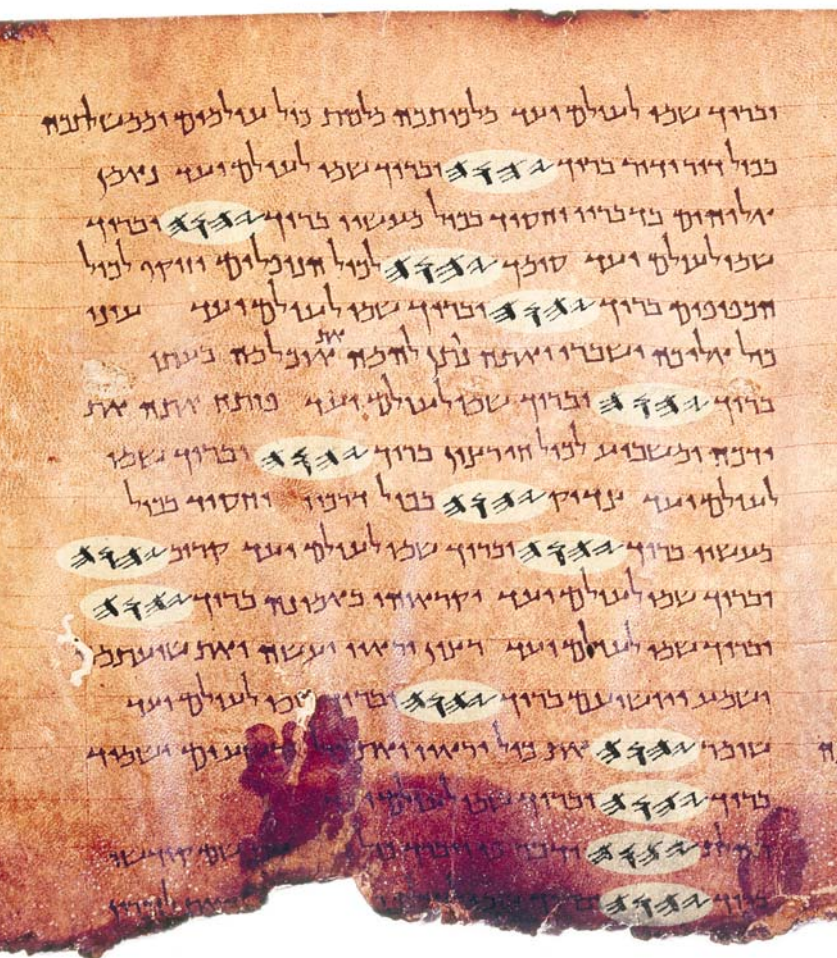 וברוך שמו לעולם ועד מלכותכה מלכות כול עולמים וממשלתכה
בכול דור ודור ברוך 𐤉𐤄𐤅𐤄 וברוך שמו לעולם ועד נאמן
אלוהים בדבריו וחסיד בכול מעשיו ברוך 𐤉𐤄𐤅𐤄 וברוך
שמו לעולם ועד סומך 𐤉𐤄𐤅𐤄 לכול הנופלים וזוקף לכול
הכפופים ברוך 𐤉𐤄𐤅𐤄 וברוך שמו לעולם ועד עיני
כול אליכה ישברו ואתה נותן להמה את אוכלמה בעתו
ברוך 𐤉𐤄𐤅𐤄 וברוך שמו לעולם ועד פותח אתה את
ידכה ומשביע לכול חי רצון ברוך 𐤉𐤄𐤅𐤄 וברוך שמו
לעולם ועד צדיק 𐤉𐤄𐤅𐤄 בכול דרכיו וחסיד בכול
מעשיו ברוך 𐤉𐤄𐤅𐤄 וברוך שמו לעולם ועד קרוב 𐤉𐤄𐤅𐤄
וברוך שמו לעולם ועד יקראוהו באמונה ברוך 𐤉𐤄𐤅𐤄
וברוך שמו לעולם ועד רצון יראיו יעשה ואת שועתמה
ישמע ויושיעם ברוך 𐤉𐤄𐤅𐤄 וברוך שמו לעולם ועד
שומר 𐤉𐤄𐤅𐤄 את כול יראיו ואת כול הרשעים ישמיד
ברוך 𐤉𐤄𐤅𐤄 וברוך שמו לעולם ועד
תהלת 𐤉𐤄𐤅𐤄 ידבר פי ויברך כול שם קודשו
ברוך 𐤉𐤄𐤅𐤄 לזכרון